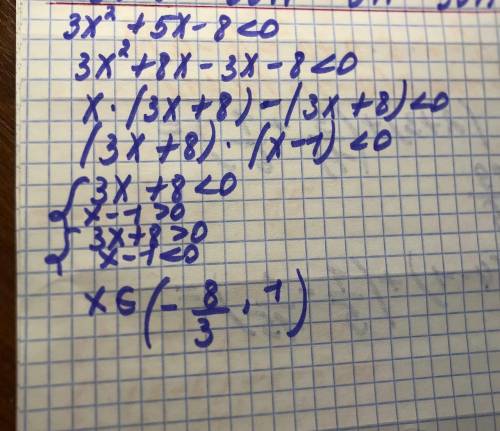 3x² + 5x - 8 < 0
3x² + 8x - 3x - 8 < 0
x · (3x + 8) - (3x + 8) < 0
(3x + 8) · (x - 1) < 0
{ 3x + 8 < 0
x - 1 > 0
{ 3x + 8 > 0
x - 1 < 0
x ∈ (- 8/3 , 1)